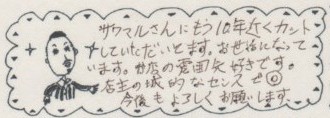 サワマルさんにもう10年近くカット
していただいとます。お世話になって
います。お店の雰囲気好きです。
店主の城的なセンスぜ◎
今後もよろしくお願いします。